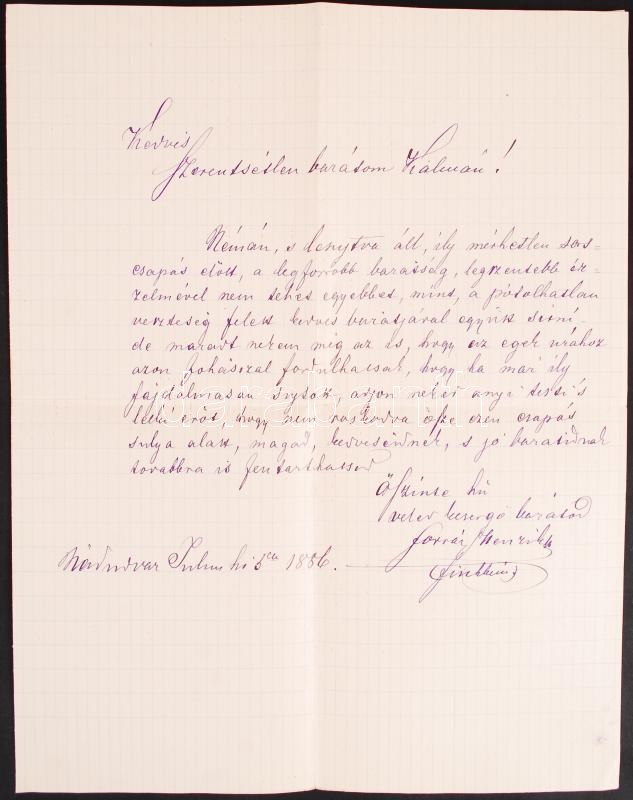 Kedves
Szerentsétlen barátom Kálmán!
Némán, s lenytva áll, ily mérhetlen sors=
csapás elött, a legforróbb barátság, legszentebb ér=
zelmével nem tehet egyebbet, mint, a pótolhatlan
veszteség felett kedves barátjával együtt sirni,
de maradt nekem még az is, hogy az egek urához
azon fohászal fordulhassak, hogy ha már ily
fájdalmasan sujtott, adjon neked anyi testi s
lelki eröt, hogy nem roskadva össze ezen csapás
sulya alatt, magad, kedveseidnek, s jo barátidnak
továbbra is fentarthassad
öszinte hü
veled kesergö barátod
Forrai Henrik
Nádudvar Julius hi 5én 1886.